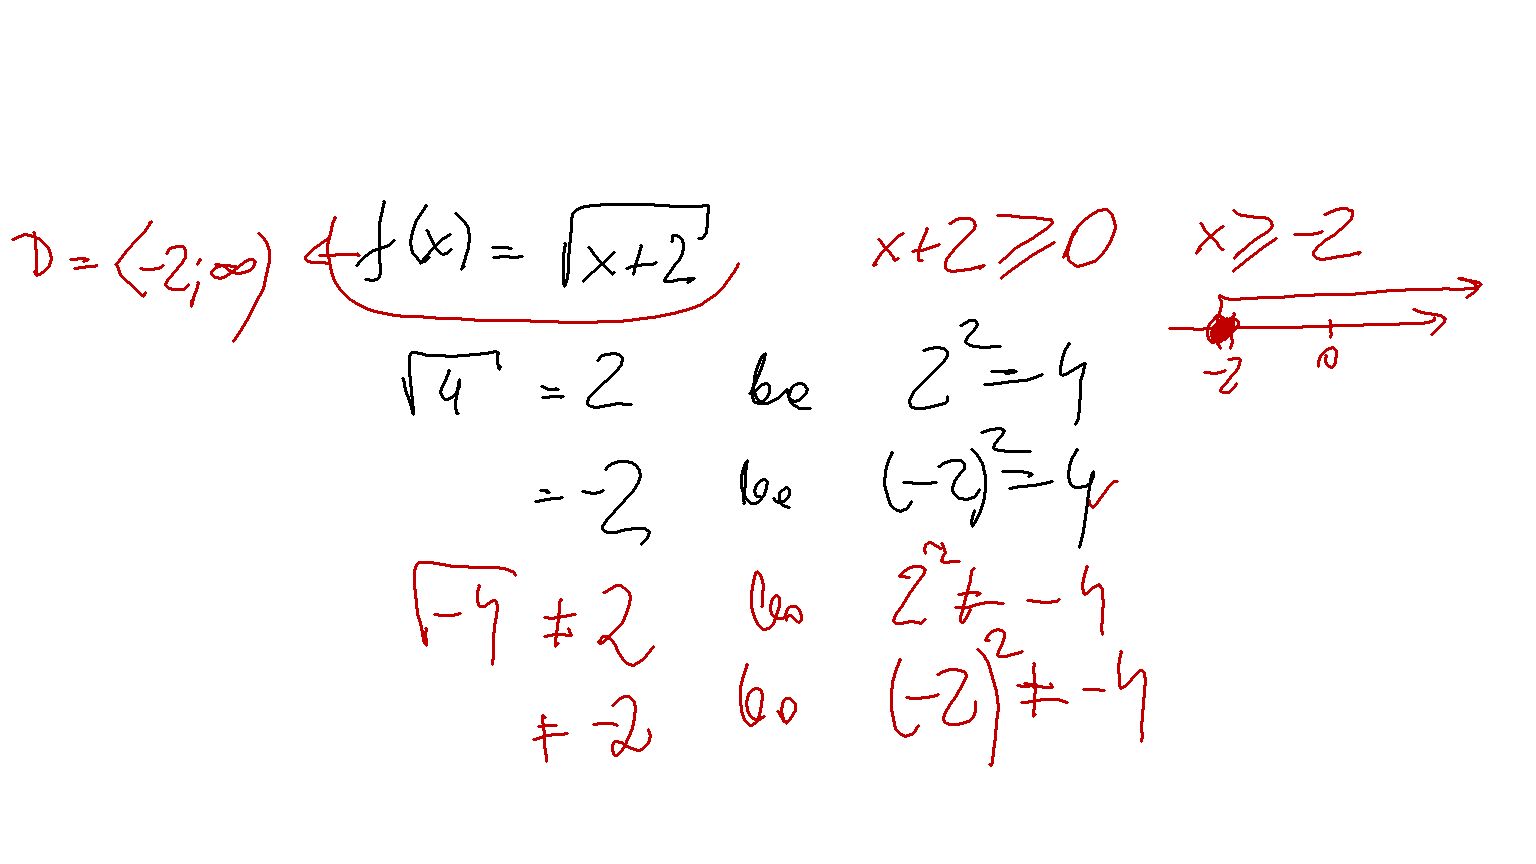 D = ⟨-2; ∞) f(x) = √(x+2) x+2 ⩾ 0 x ⩾ -2
-2 0
√4 = 2 bo 2² = 4
= -2 bo (-2)² = 4 ✓
√-4 ≠ 2 bo 2² ≠ -4
≠ -2 bo (-2)² ≠ -4